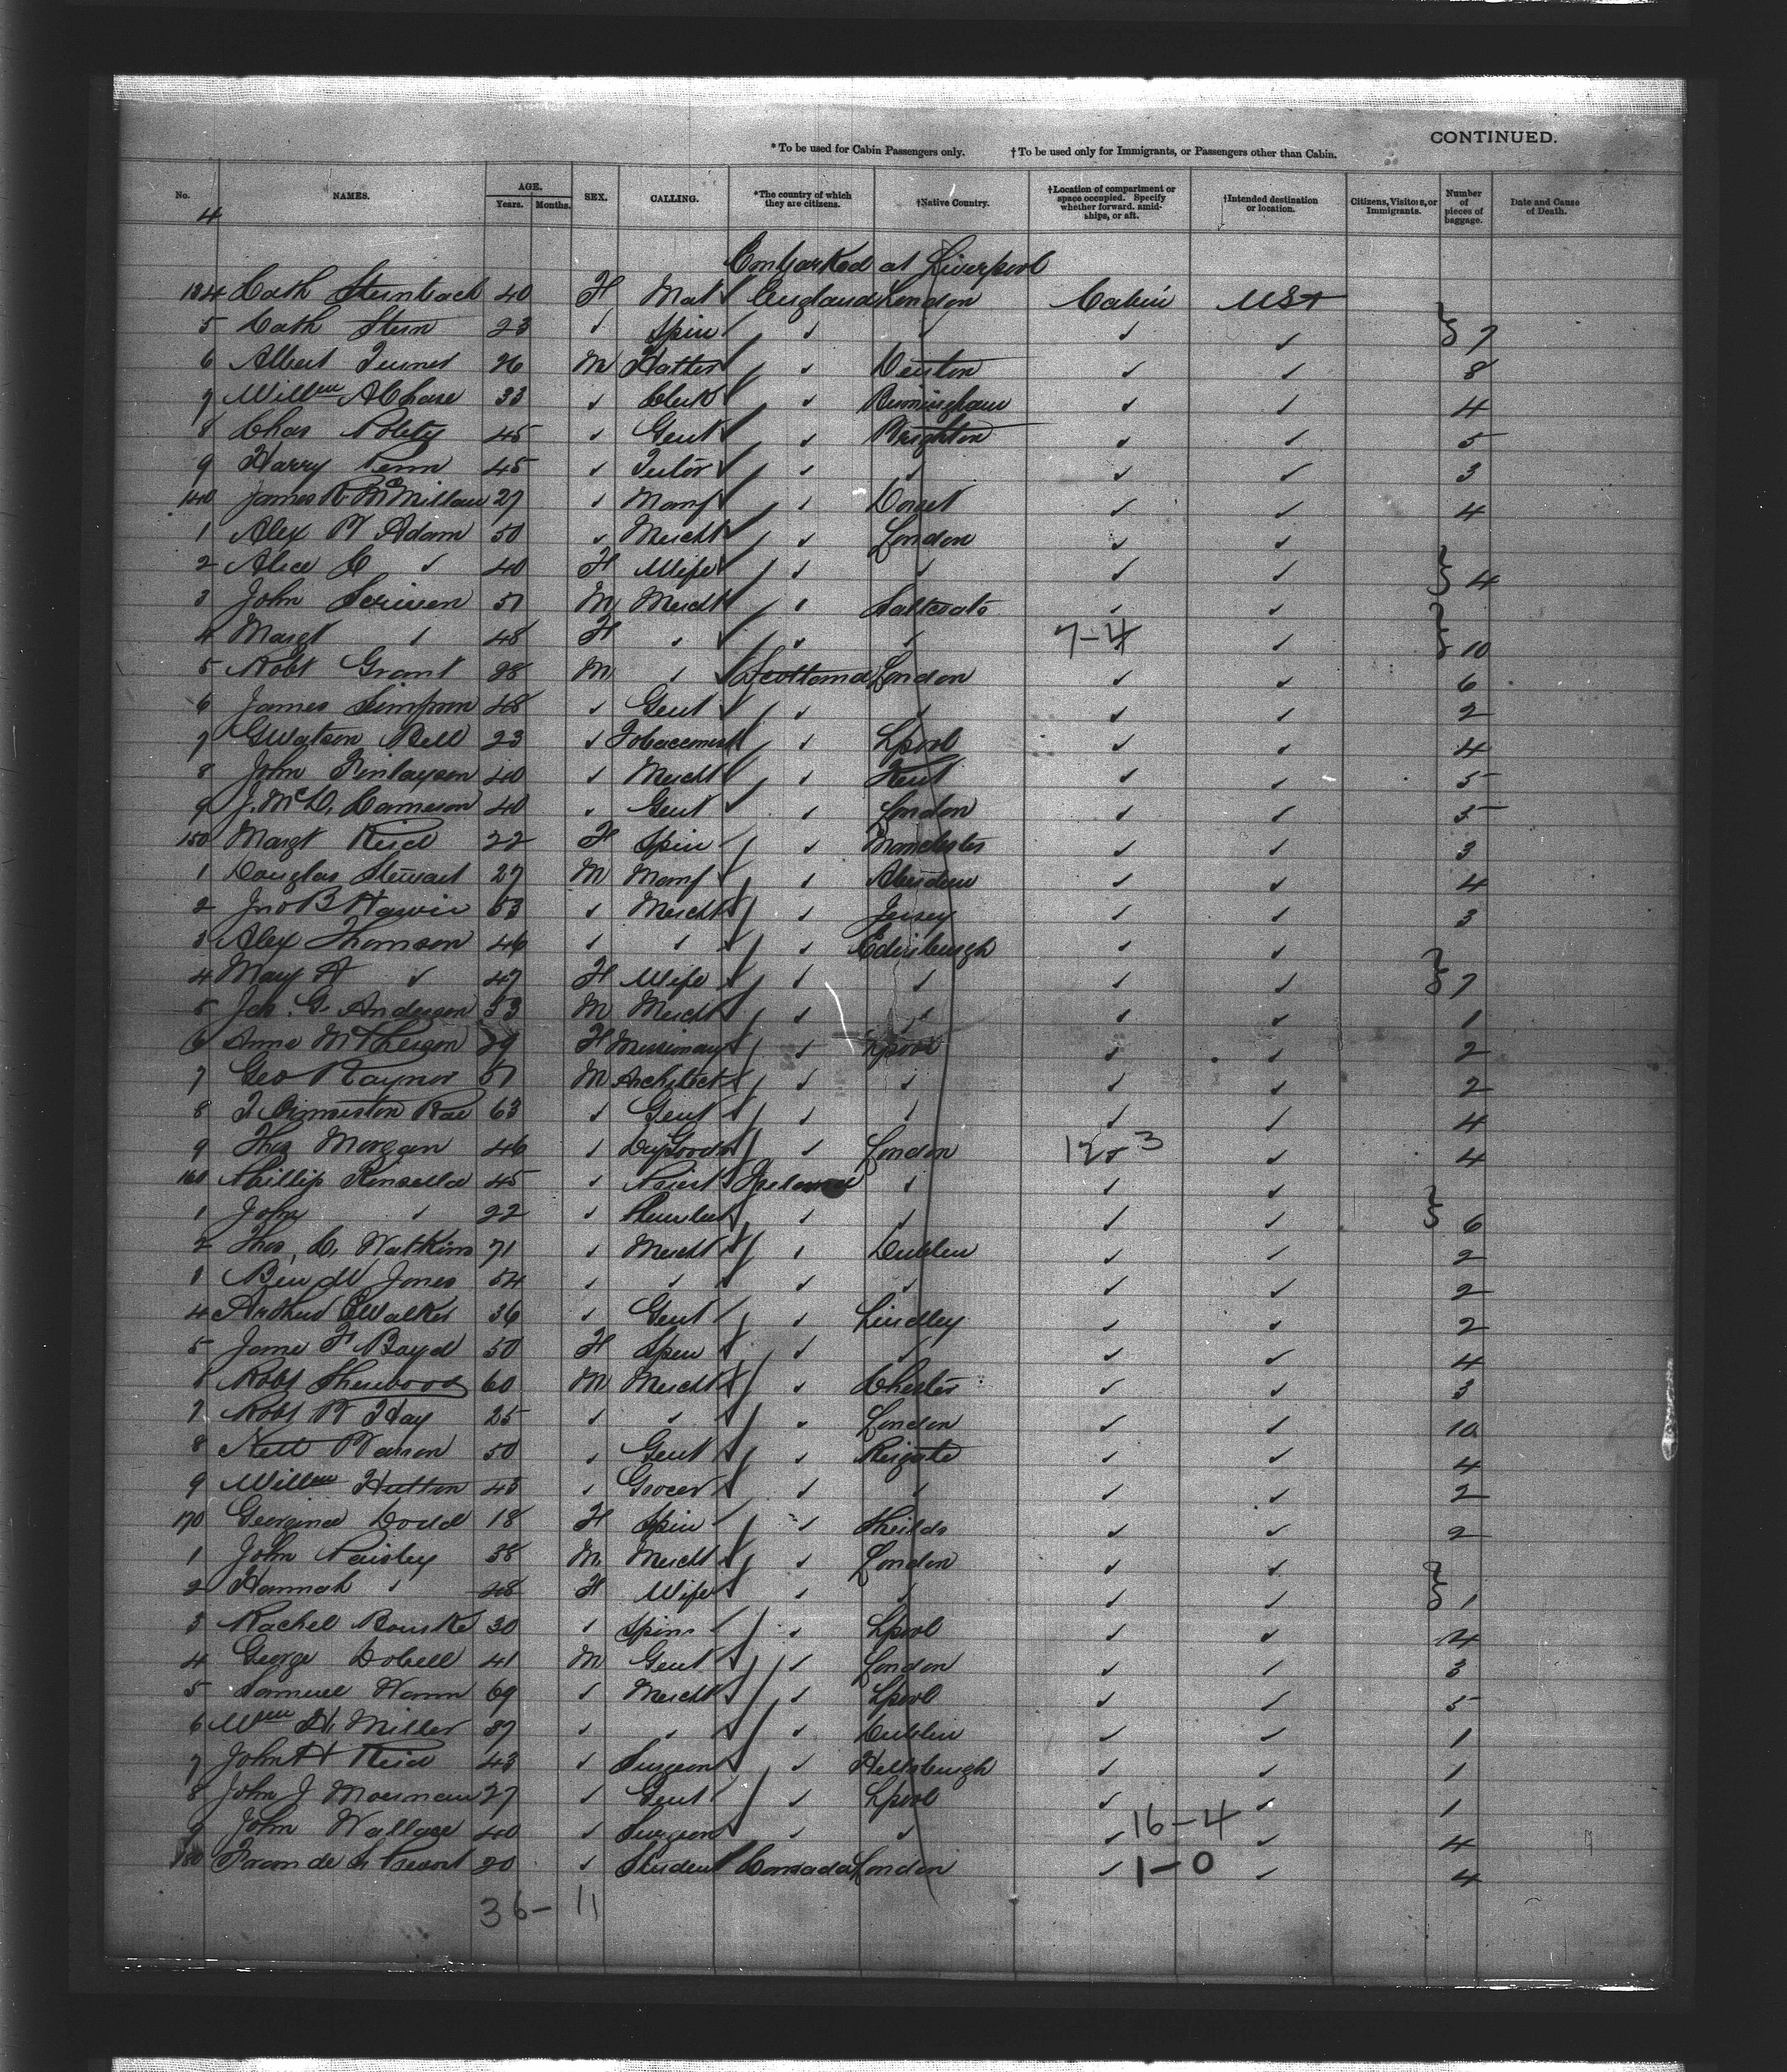 CONTINUED.
* To be used for Cabin Passengers only. † To be used only for Immigrants, or Passengers other than Cabin.
No. NAMES. AGE. Years. Months. SEX. CALLING. *The country of which they are citizens. †Native Country. †Location of compartment or space occupied. Specify whether forward, amidships, or aft. †Intended destination or location. Citizens, Visitors, or Immigrants. Number of pieces of baggage. Date and Cause of Death.
4
Embarked at Liverpool
134 Cath Steinbach 40 F Mat ✓ England London Cabin USA
5 Cath Stern 23 ✓ Spin ✓ ✓ ✓ ✓ ✓ } 7
6 Albert Turner 26 M Hatter ✓ ✓ Denton ✓ ✓ 8
7 Willm A Chase 33 ✓ Clerk ✓ ✓ Birmingham ✓ ✓ 4
8 Chas 45 ✓ Gent ✓ ✓ Brighton ✓ ✓ 5
9 Harry Penn 45 ✓ Tutor ✓ ✓ ✓ ✓ ✓ 3
140 James R McMillan 27 ✓ Manf ✓ ✓ Dorset ✓ ✓ 4
1 Alex W Adam 50 ✓ Mercht ✓ ✓ London ✓ ✓
2 Alice C ✓ 40 F Wife ✓ ✓ ✓ ✓ ✓ } 4
3 John Scriven 51 M Mercht ✓ ✓ Saltcoats ✓ ✓
4 Margt ✓ 48 F ✓ ✓ ✓ ✓ 7-4 ✓ } 10
5 Robt Grant 28 M ✓ ✓ Scotland London ✓ ✓ 6
6 James Simpson 48 ✓ Gent ✓ ✓ ✓ ✓ ✓ 2
7 G Watson Bell 23 ✓ Tobacconist ✓ ✓ Lpool ✓ ✓ 4
8 John Finlayson 40 ✓ Mercht ✓ ✓ Kent ✓ ✓ 5
9 J. McD. Cameron 40 ✓ Gent ✓ ✓ London ✓ ✓ 5
150 Margt Reid 22 F Spin ✓ ✓ Manchester ✓ ✓ 3
1 Douglas Stewart 27 M Manf ✓ ✓ Aberdeen ✓ ✓ 4
2 Jno B Hawie 53 ✓ Mercht ✓ ✓ Jersey ✓ ✓ 3
3 Alex Thomson 46 ✓ ✓ ✓ ✓ Edinburgh ✓ ✓
4 Mary A ✓ 47 F Wife ✓ ✓ ✓ ✓ ✓ } 7
5 Jas. G. Anderson 53 M Mercht ✓ ✓ ✓ ✓ ✓ 1
6 Anna McPherson 29 F Missionary ✓ ✓ Lpool ✓ ✓ 2
7 Geo Raynor 51 M Architect ✓ ✓ ✓ ✓ ✓ 2
8 Ormiston Rae 63 ✓ Gent ✓ ✓ ✓ ✓ ✓ 4
9 Thos Morgan 46 ✓ Dry Goods ✓ ✓ London 12-3 ✓ 4
160 Phillip Kinsella 45 ✓ Priest ✓ Ireland ✓ ✓ ✓
1 John ✓ 22 ✓ Plumber ✓ ✓ ✓ ✓ ✓ } 6
2 Thos. C. Watkins 71 ✓ Mercht ✓ ✓ Dublin ✓ ✓ 2
Jones 54 ✓ ✓ ✓ ✓ ✓ ✓ ✓ 2
4 Arthur E Walker 36 ✓ Gent ✓ ✓ Lindley ✓ ✓ 2
5 Jane F Boyd 50 F Spin ✓ ✓ ✓ ✓ ✓ 4
Robt Sherwood 60 M Mercht ✓ ✓ Chester ✓ ✓ 3
7 Robt W Hay 25 ✓ ✓ ✓ ✓ London ✓ ✓ 10
8 50 ✓ Gent ✓ ✓ Reigate ✓ ✓ 4
9 Willm Hutton 43 ✓ Grocer ✓ ✓ ✓ ✓ ✓ 2
170 Georgina Dodd 18 F Spin ✓ ✓ Sheilds ✓ ✓ 2
1 John Paisley 38 M Mercht ✓ ✓ London ✓ ✓
2 Hannah ✓ 28 F Wife ✓ ✓ ✓ ✓ ✓ } 1
3 Rachel Bourke 30 ✓ Spin ✓ ✓ Lpool ✓ ✓ 4
4 George Dobell 41 M Gent ✓ ✓ London ✓ ✓ 3
5 Samuel Hann 69 ✓ Mercht ✓ ✓ Lpool ✓ ✓ 5
6 Wm H. Miller 37 ✓ ✓ ✓ ✓ Dublin ✓ ✓ 1
7 John H Reid 43 ✓ Surgeon ✓ ✓ Hellsburgh ✓ ✓ 1
8 John J 27 ✓ Gent ✓ ✓ Lpool ✓ ✓ 1
9 John Wallace 40 ✓ Surgeon ✓ ✓ ✓ ✓ 16-4 ✓ 4
180 20 ✓ Student Canada London ✓ 1-0 ✓ 4
36- 11